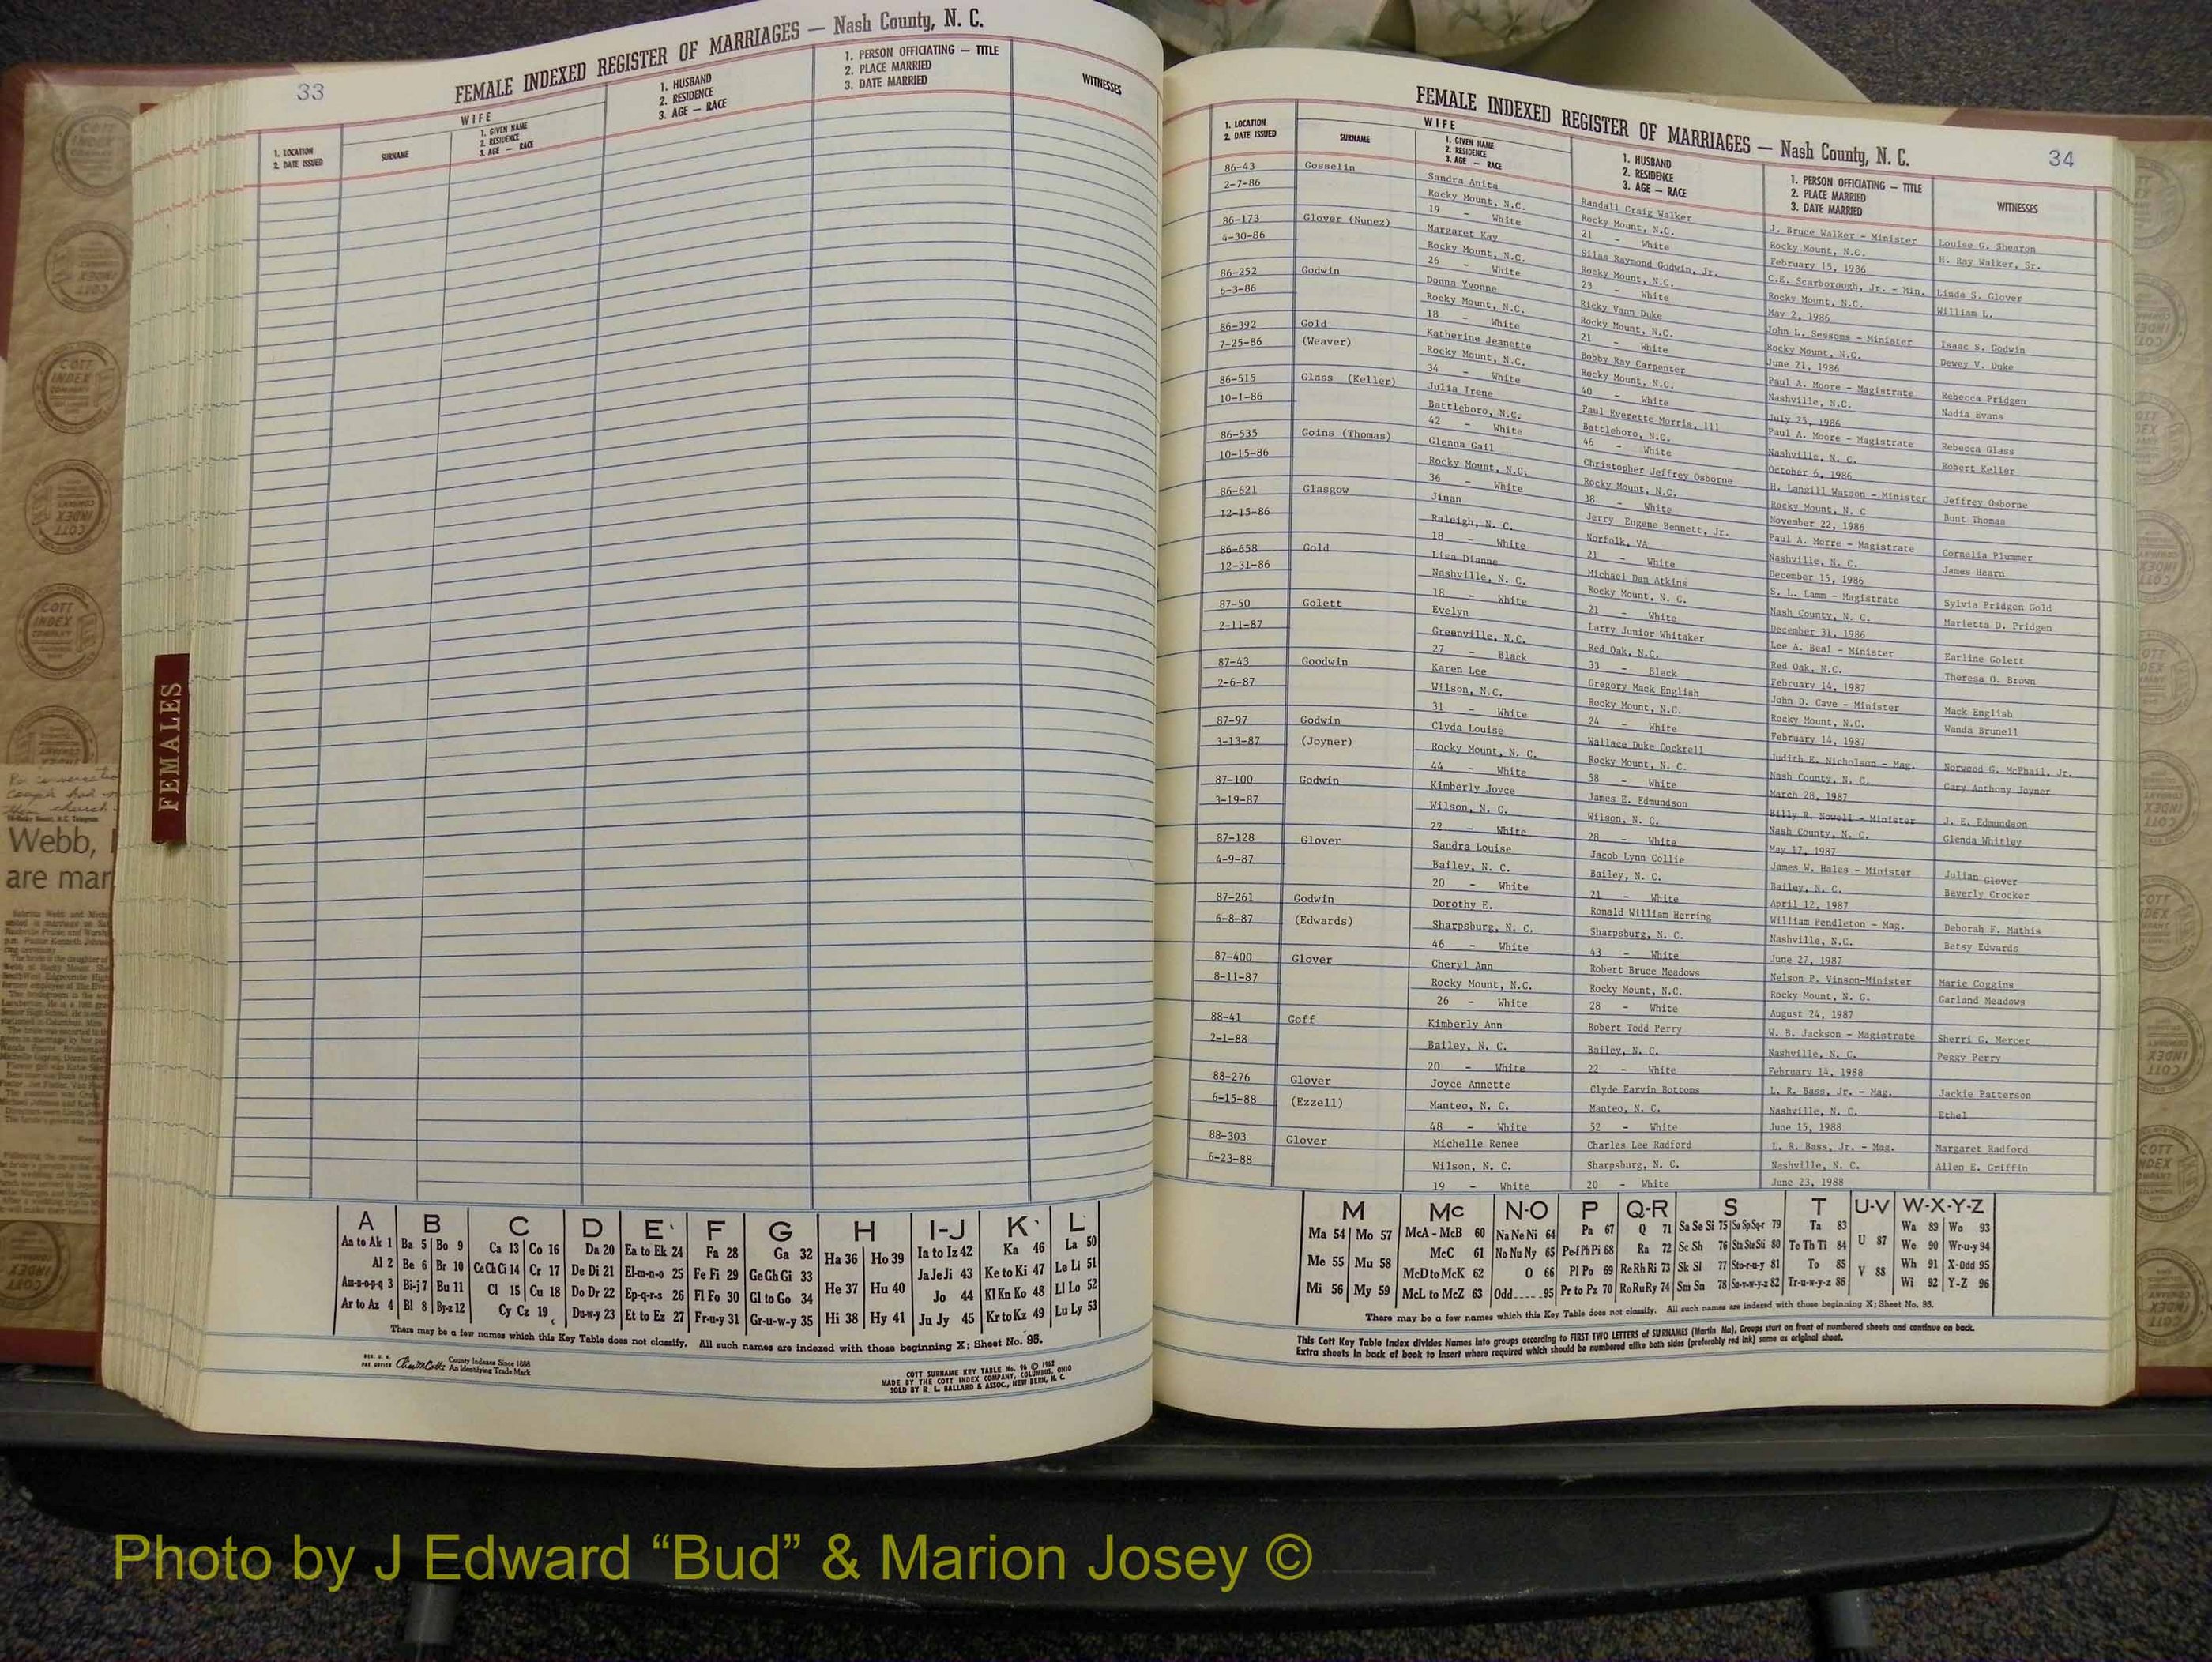 33
FEMALE INDEXED REGISTER OF MARRIAGES — Nash County, N. C.
1. LOCATION
2. DATE ISSUED
WIFE
SURNAME
1. GIVEN NAME
2. RESIDENCE
3. AGE — RACE
1. HUSBAND
2. RESIDENCE
3. AGE — RACE
1. PERSON OFFICIATING — TITLE
2. PLACE MARRIED
3. DATE MARRIED
WITNESSES
FEMALES
Webb,
are mar
A B C D E F G H I-J K L
Aa to Ak 1 Ba 5 Bo 9 Ca 13 Co 16 Da 20 Ea to Ek 24 Fa 28 Ga 32 Ha 36 Ho 39 Ia to Iz 42 Ka 46 La 50
Al 2 Be 6 Br 10 Ce Ch Ci 14 Cr 17 De Di 21 El-m-n-o 25 Fe Fi 29 Ge Gh Gi 33 He 37 Hu 40 Ja Je Ji 43 Ke to Ki 47 Le Li 51
Am-n-o-p-q 3 Bi-j 7 Bu 11 Cl 15 Cu 18 Do Dr 22 Ep-q-r-s 26 Fl Fo 30 Gl to Go 34 Hi 38 Hy 41 Jo 44 Kl Kn Ko 48 Ll Lo 52
Ar to Az 4 Bl 8 By-z 12 Cy Cz 19 Du-w-y 23 Et to Ez 27 Fr-u-y 31 Gr-u-w-y 35 Ju Jy 45 Kr to Kz 49 Lu Ly 53
There may be a few names which this Key Table does not classify. All such names are indexed with those beginning X; Sheet No. 96.
County Indexes Since 1888
An Identifying Trade Mark
COTT SURNAME KEY TABLE No. 96 © 1962
MADE BY THE COTT INDEX COMPANY, COLUMBUS, OHIO
SOLD BY R. L. BALLARD & ASSOC., NEW BERN, N. C.
34
FEMALE INDEXED REGISTER OF MARRIAGES — Nash County, N. C.
1. LOCATION
2. DATE ISSUED
WIFE
SURNAME
1. GIVEN NAME
2. RESIDENCE
3. AGE — RACE
1. HUSBAND
2. RESIDENCE
3. AGE — RACE
1. PERSON OFFICIATING — TITLE
2. PLACE MARRIED
3. DATE MARRIED
WITNESSES
86-43 Gosselin Sandra Anita Randall Craig Walker J. Bruce Walker - Minister Louise G. Shearon
2-7-86 Rocky Mount, N.C. Rocky Mount, N.C. Rocky Mount, N.C. H. Ray Walker, Sr.
19 - White 21 - White February 15, 1986
86-173 Glover (Nunez) Margaret Kay Silas Raymond Godwin, Jr. C.E. Scarborough, Jr. - Min. Linda S. Glover
4-30-86 Rocky Mount, N.C. Rocky Mount, N.C. Rocky Mount, N.C. William L.
26 - White 23 - White May 2, 1986
86-252 Godwin Donna Yvonne Ricky Vann Duke John L. Sessoms - Minister Isaac S. Godwin
6-3-86 Rocky Mount, N.C. Rocky Mount, N.C. Rocky Mount, N.C. Dewey V. Duke
18 - White 21 - White June 21, 1986
86-392 Gold Katherine Jeanette Bobby Ray Carpenter Paul A. Moore - Magistrate Rebecca Pridgen
7-25-86 (Weaver) Rocky Mount, N.C. Rocky Mount, N.C. Nashville, N.C. Nadia Evans
34 - White 40 - White July 25, 1986
86-515 Glass (Keller) Julia Irene Paul Everette Morris, 111 Paul A. Moore - Magistrate Rebecca Glass
10-1-86 Battleboro, N.C. Battleboro, N.C. Nashville, N. C. Robert Keller
42 - White 46 - White October 6, 1986
86-535 Goins (Thomas) Glenna Gail Christopher Jeffrey Osborne H. Langill Watson - Minister Jeffrey Osborne
10-15-86 Rocky Mount, N.C. Rocky Mount, N.C. Rocky Mount, N. C Bunt Thomas
36 - White 38 - White November 22, 1986
86-621 Glasgow Jinan Jerry Eugene Bennett, Jr. Paul A. Morre - Magistrate Cornelia Plummer
12-15-86 Raleigh, N. C. Norfolk, VA Nashville, N. C. James Hearn
18 - White 21 - White December 15, 1986
86-658 Gold Lisa Dianne Michael Dan Atkins S. L. Lamm - Magistrate Sylvia Pridgen Gold
12-31-86 Nashville, N. C. Rocky Mount, N. C. Nash County, N. C. Marietta D. Pridgen
18 - White 21 - White December 31, 1986
87-50 Golett Evelyn Larry Junior Whitaker Lee A. Beal - Minister Earline Golett
2-11-87 Greenville, N.C. Red Oak, N.C. Red Oak, N.C. Theresa O. Brown
27 - Black 33 - Black February 14, 1987
87-43 Goodwin Karen Lee Gregory Mack English John D. Cave - Minister Mack English
2-6-87 Wilson, N.C. Rocky Mount, N.C. Rocky Mount, N.C. Wanda Brunell
31 - White 24 - White February 14, 1987
87-97 Godwin Clyda Louise Wallace Duke Cockrell Judith E. Nicholson - Mag. Norwood G. McPhail, Jr.
3-13-87 (Joyner) Rocky Mount, N. C. Rocky Mount, N. C. Nash County, N. C. Gary Anthony Joyner
44 - White 58 - White March 28, 1987
87-100 Godwin Kimberly Joyce James E. Edmundson Billy R. Nowell - Minister J. E. Edmundson
3-19-87 Wilson, N. C. Wilson, N. C. Nash County, N. C. Glenda Whitley
22 - White 28 - White May 17, 1987
87-128 Glover Sandra Louise Jacob Lynn Collie James W. Hales - Minister Julian Glover
4-9-87 Bailey, N. C. Bailey, N. C. Bailey, N. C. Beverly Crocker
20 - White 21 - White April 12, 1987
87-261 Godwin Dorothy E. Ronald William Herring William Pendleton - Mag. Deborah F. Mathis
6-8-87 (Edwards) Sharpsburg, N. C. Sharpsburg, N. C. Nashville, N.C. Betsy Edwards
46 - White 43 - White June 27, 1987
87-400 Glover Cheryl Ann Robert Bruce Meadows Nelson P. Vinson-Minister Marie Coggins
8-11-87 Rocky Mount, N.C. Rocky Mount, N.C. Rocky Mount, N. G. Garland Meadows
26 - White 28 - White August 24, 1987
88-41 Goff Kimberly Ann Robert Todd Perry W. B. Jackson - Magistrate Sherri G. Mercer
2-1-88 Bailey, N. C. Bailey, N. C. Nashville, N. C. Peggy Perry
20 - White 22 - White February 14, 1988
88-276 Glover Joyce Annette Clyde Earvin Bottoms L. R. Bass, Jr. - Mag. Jackie Patterson
6-15-88 (Ezzell) Manteo, N. C. Manteo, N. C. Nashville, N. C. Ethel
48 - White 52 - White June 15, 1988
88-303 Glover Michelle Renee Charles Lee Radford L. R. Bass, Jr. - Mag. Margaret Radford
6-23-88 Wilson, N. C. Sharpsburg, N. C. Nashville, N. C. Allen E. Griffin
19 - White 20 - White June 23, 1988
M Mc N-O P Q-R S T U-V W-X-Y-Z
Ma 54 Mo 57 McA - McB 60 Na Ne Ni 64 Pa 67 Q 71 Sa Se Si 75 So Sp Sq-r 79 Ta 83 U 87 Wa 89 Wo 93
Me 55 Mu 58 McC 61 No Nu Ny 65 Pe-f Ph Pi 68 Ra 72 Sc Sh 76 Sta Ste Sti 80 Te Th Ti 84 V 88 We 90 Wr-u-y 94
Mi 56 My 59 McD to McK 62 O 66 Pl Po 69 Re Rh Ri 73 Sk Sl 77 Sto-r-u-y 81 To 85 Wh 91 X-Odd 95
McL to McZ 63 Odd 95 Pr to Pz 70 Ro Ru Ry 74 Sm Sn 78 Su-v-w-y-z 82 Tr-u-w-y-z 86 Wi 92 Y-Z 96
There may be a few names which this Key Table does not classify. All such names are indexed with those beginning X; Sheet No. 96.
This Cott Key Table Index divides Names into groups according to FIRST TWO LETTERS of SURNAMES (Martin Ma), Groups start on front of numbered sheets and continue on back.
Extra sheets in back of book to insert where required which should be numbered alike both sides (preferably red ink) same as original sheet.
Photo by J Edward “Bud” & Marion Josey ©